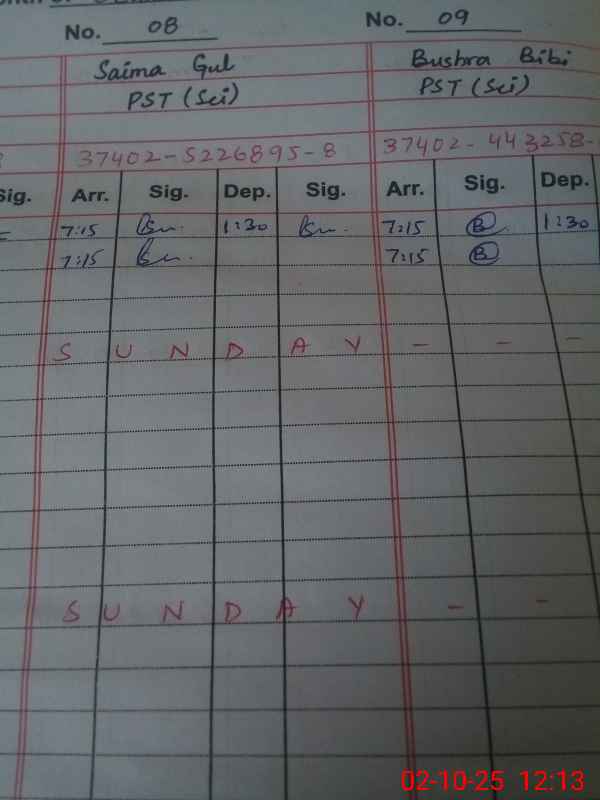 No. 08 No. 09
Saima Gul Bushra Bibi
PST (Sci) PST (Sci)
37402-5226895-8 37402-443258-
Sig. Arr. Sig. Dep. Sig. Arr. Sig. Dep.
7:15 1:30 7:15 B 1:30
7:15 7:15 B
S U N D A Y - - -
S U N D A Y - -
02-10-25 12:13